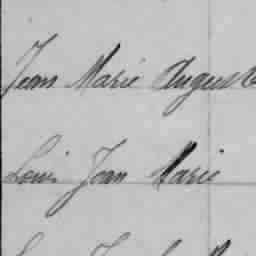 Jean Marie Auguste
Louis Jean Marie